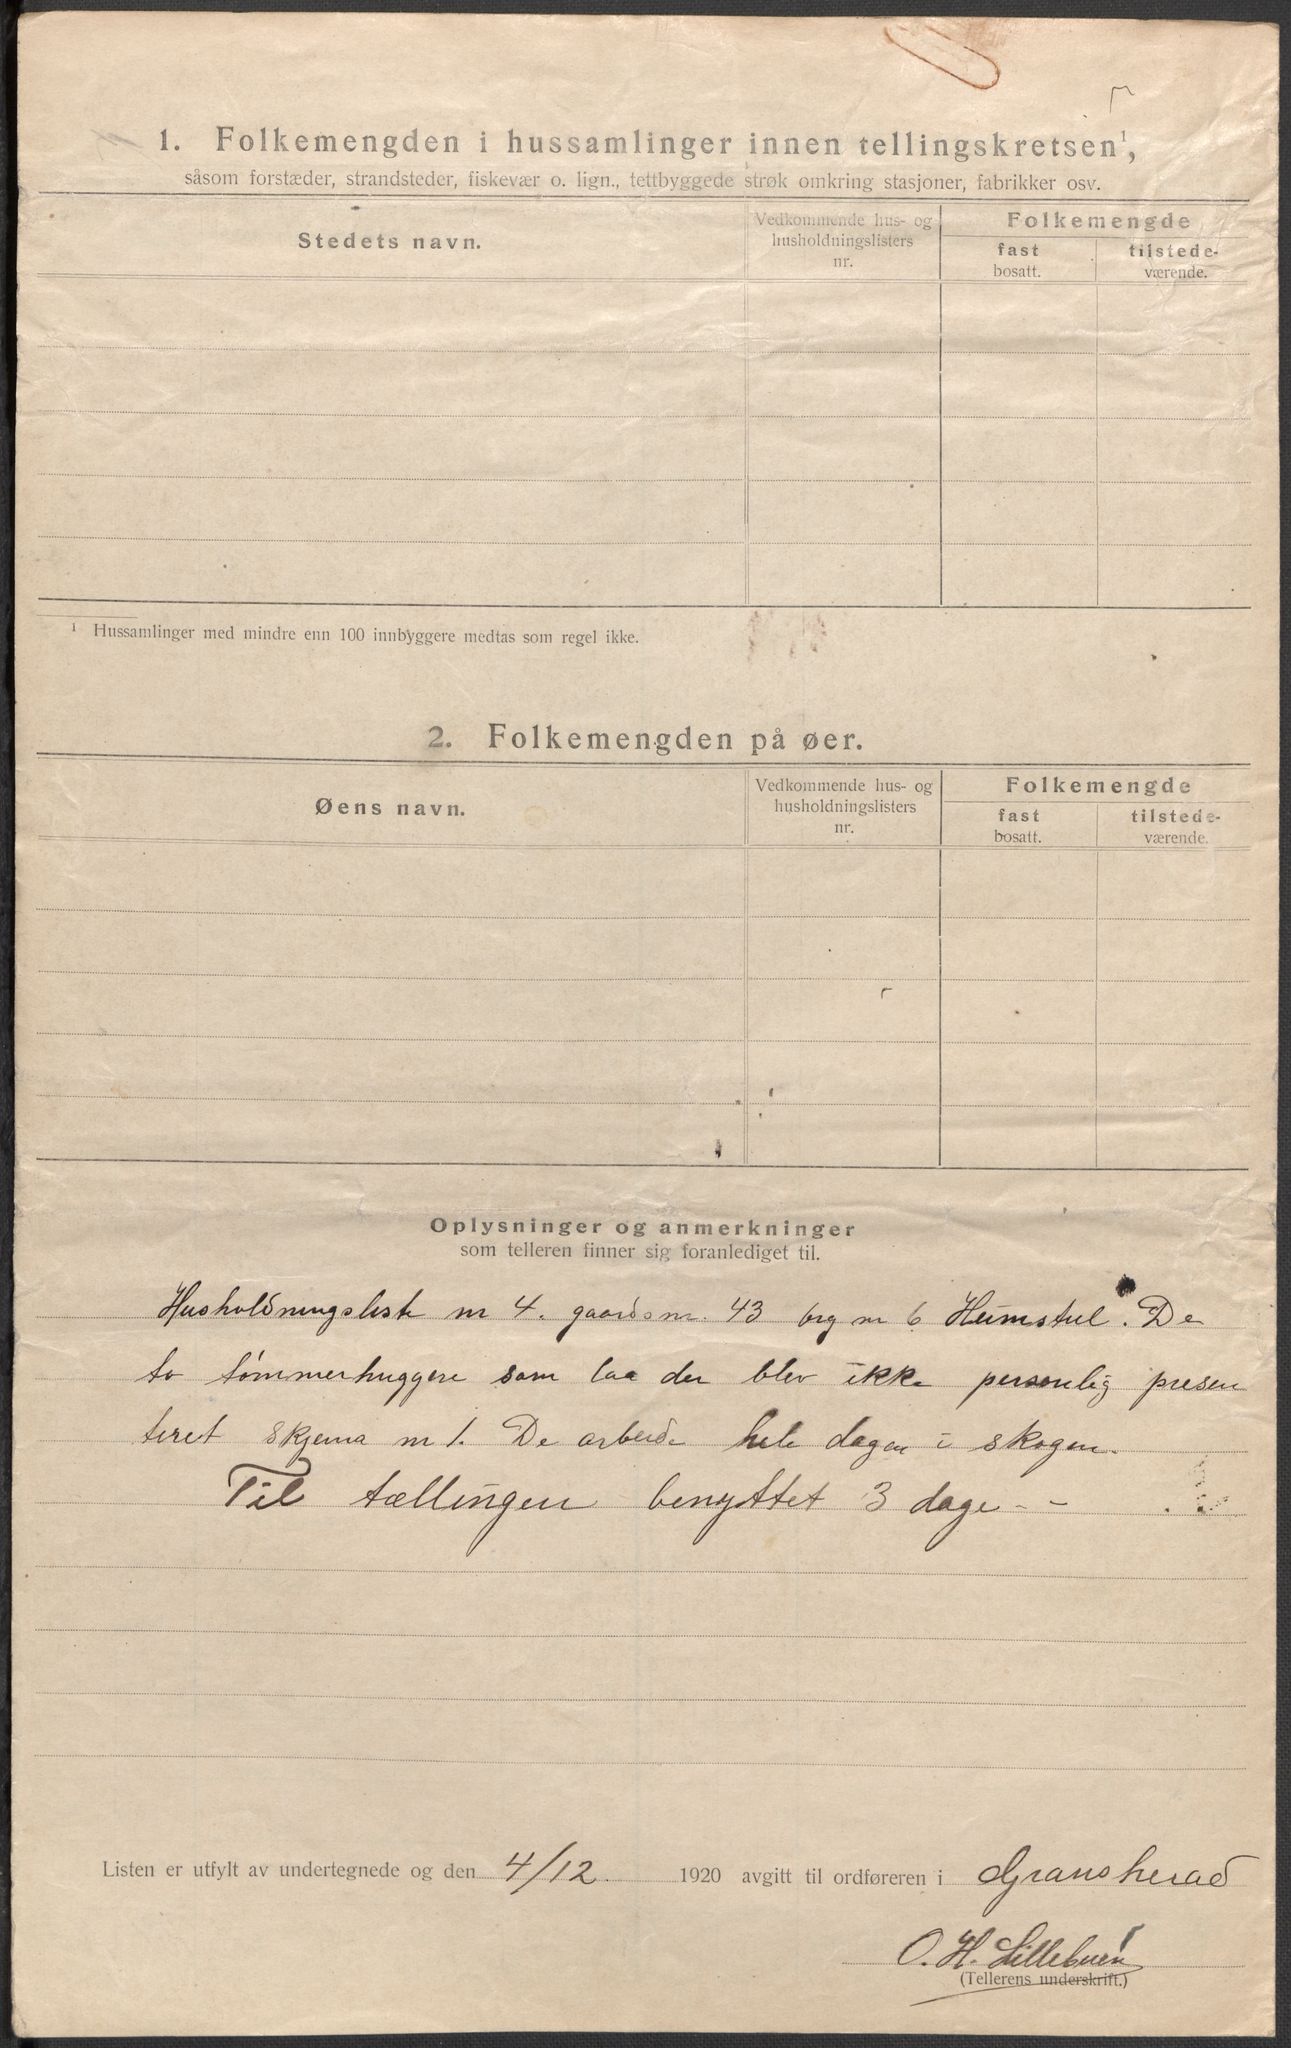 1. Folkemengden i hussamlinger innen tellingskretsen¹,
såsom forstæder, strandsteder, fiskevær o. lign., tettbyggede strøk omkring stasjoner, fabrikker osv.
Stedets navn.
Vedkommende hus- og
husholdningslisters
nr.
Folkemengde
fast
bosatt.
tilstede-
værende.
¹ Hussamlinger med mindre enn 100 innbyggere medtas som regel ikke.
2. Folkemengden på øer.
Øens navn.
Vedkommende hus- og
husholdningslisters
nr.
Folkemengde
fast
bosatt.
tilstede-
værende.
Oplysninger og anmerkninger
som telleren finner sig foranlediget til.
Husholdningsliste nr 4. gaardsnr. 43 brg nr 6 Heimstul. De
to tømmerhuggere som laa der blev ikke personlig presen
teret skjema nr 1. De arbeide hele dagen i skogen.
Til tællingen benyttet 3 dage - -
Listen er utfylt av undertegnede og den 4/12 1920 avgitt til ordføreren i Gransherad
O. H. Lillebuen
(Tellerens underskrift.)